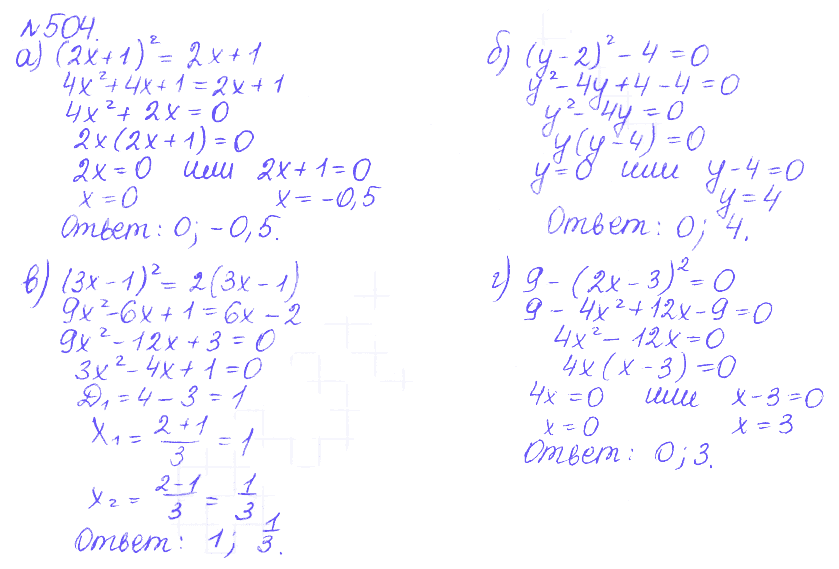 №504.
а) (2x+1)² = 2x+1
4x²+4x+1=2x+1
4x²+2x=0
2x(2x+1)=0
2x=0 или 2x+1=0
x=0 x=-0,5
Ответ: 0; -0,5.
б) (y-2)²-4=0
y²-4y+4-4=0
y²-4y=0
y(y-4)=0
y=0 или y-4=0
y=4
Ответ: 0; 4.
в) (3x-1)²=2(3x-1)
9x²-6x+1=6x-2
9x²-12x+3=0
3x²-4x+1=0
Д₁=4-3=1
x₁ = (2+1)/3 = 1
x₂ = (2-1)/3 = 1/3
Ответ: 1; 1/3.
г) 9-(2x-3)²=0
9-4x²+12x-9=0
4x²-12x=0
4x(x-3)=0
4x=0 или x-3=0
x=0 x=3
Ответ: 0; 3.